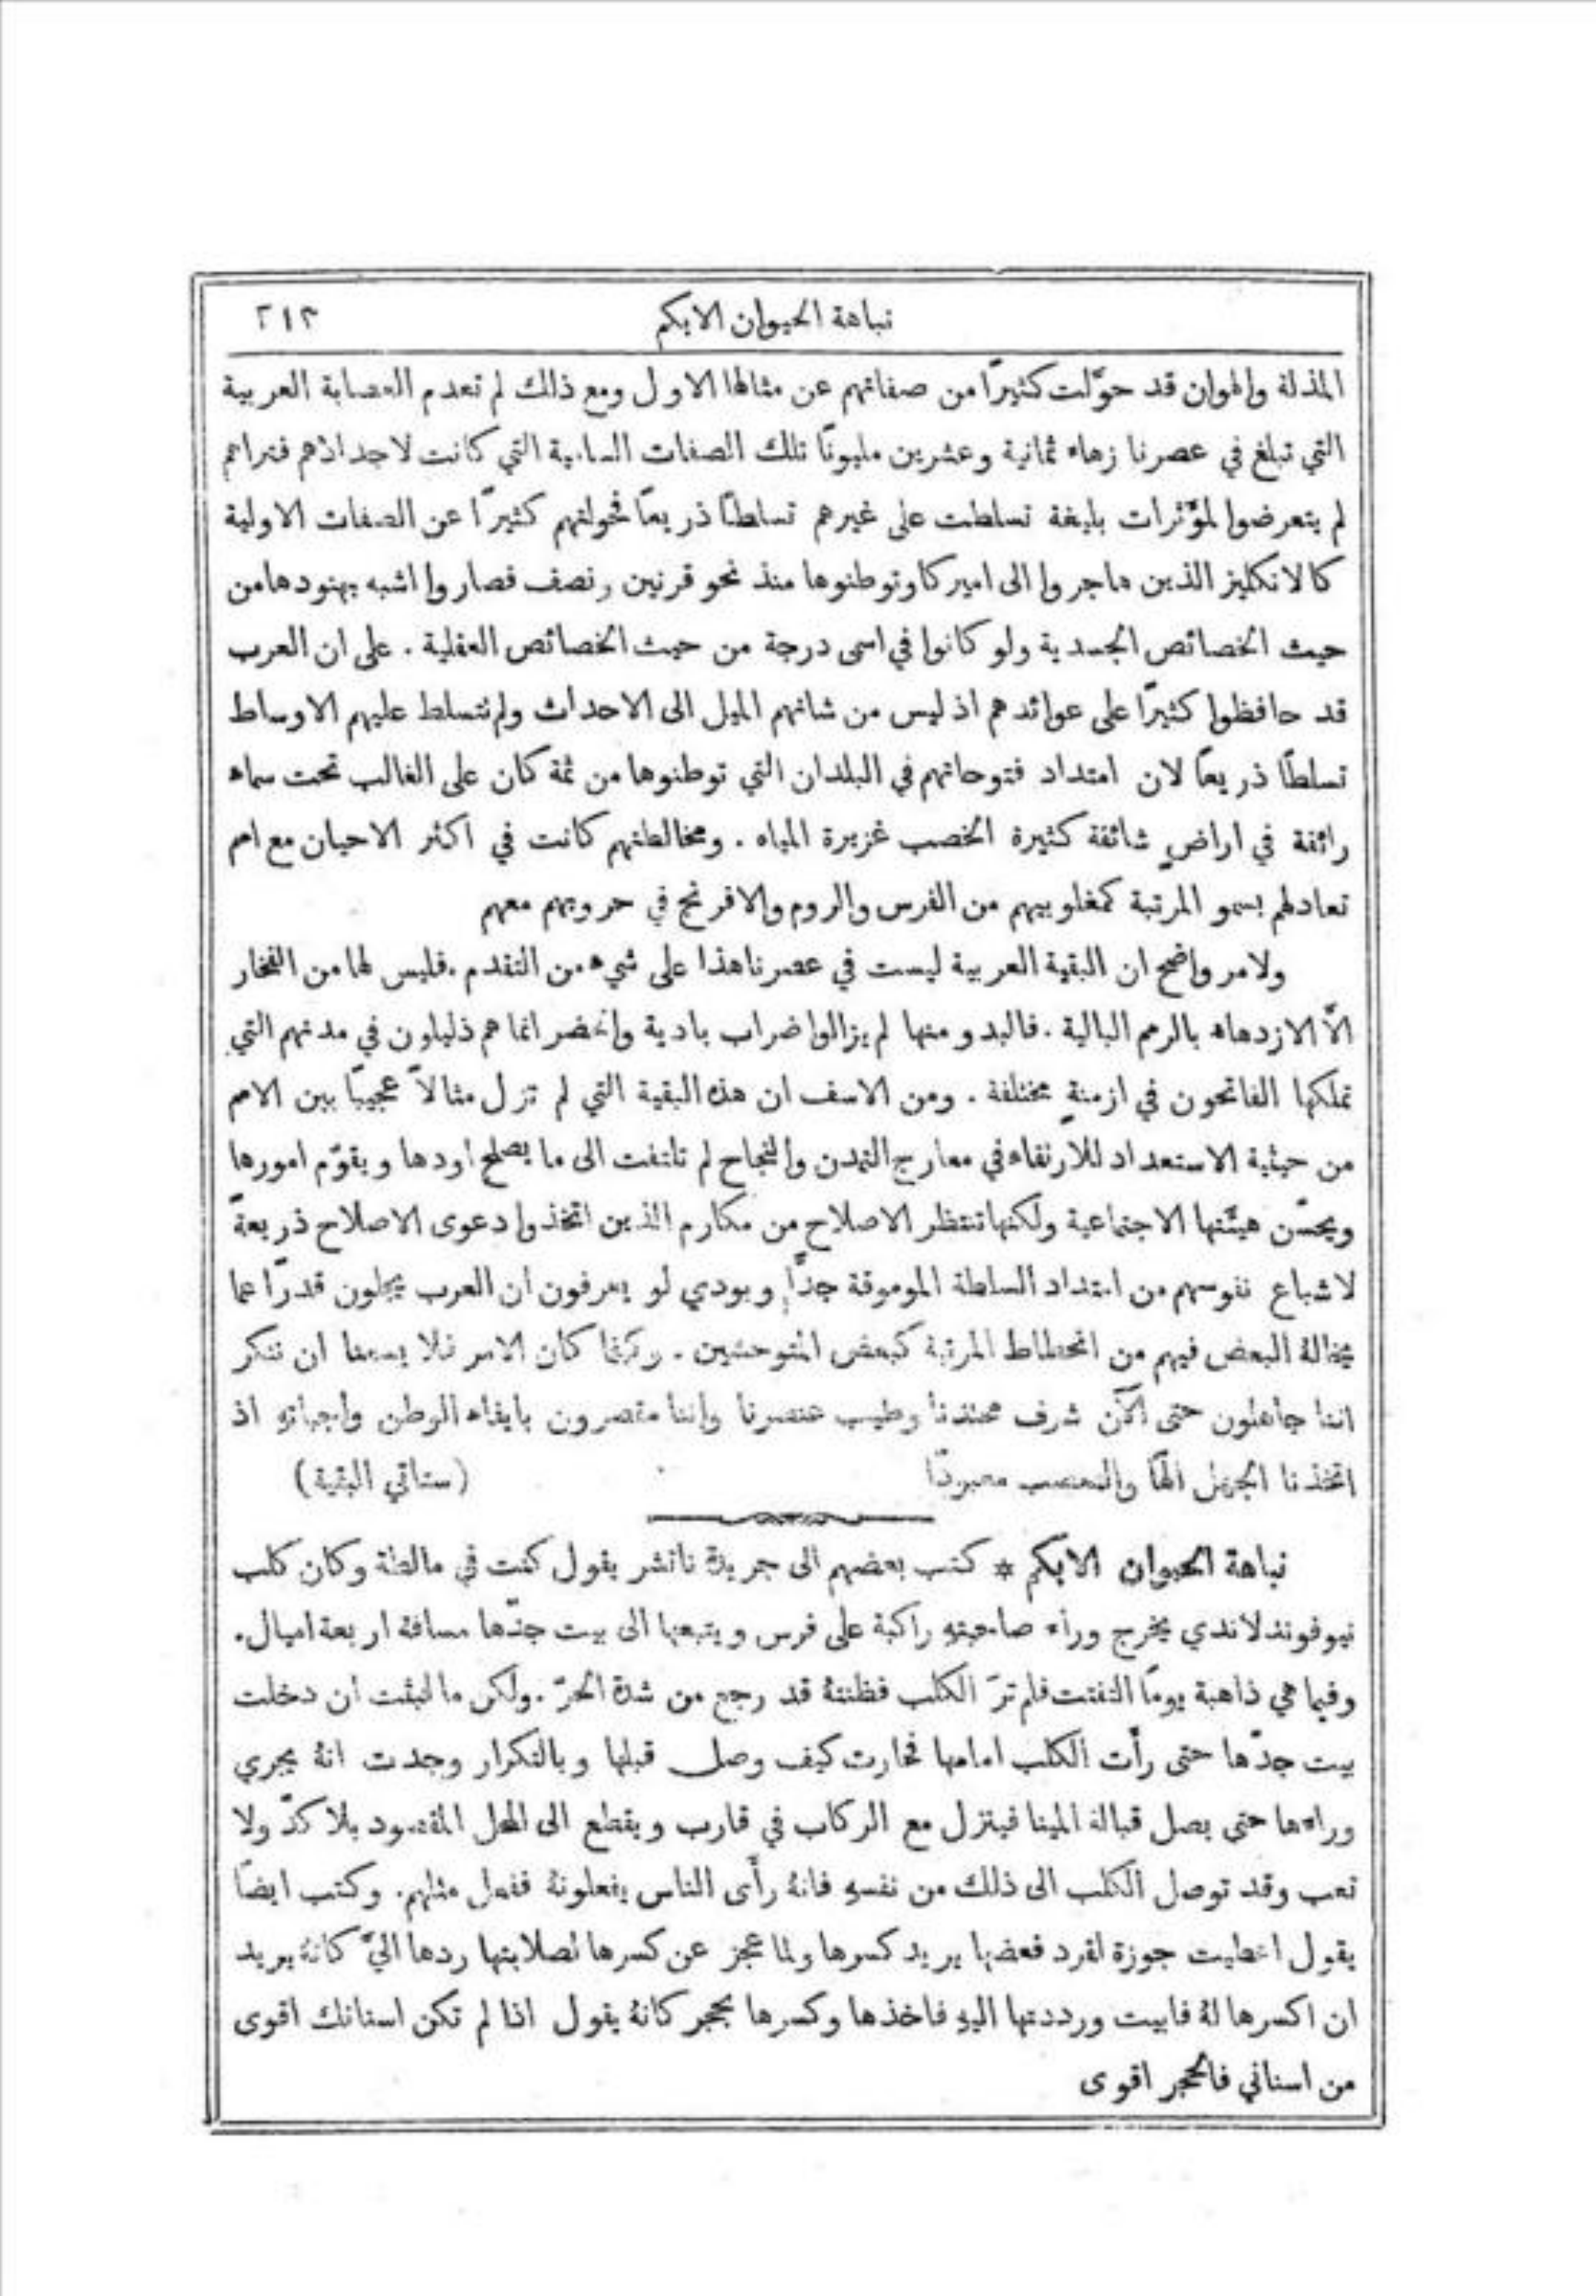 نباهة الحيوان الابكم
٢١٣
المذلة والهوان قد حوّلت كثيرًا من صفاتهم عن مثالها الاول ومع ذلك لم تعدم العصابة العربية
التي تبلغ في عصرنا زهاء ثمانية وعشرين مليونًا تلك الصفات السامية التي كانت لاجدادهم فتراهم
لم يتعرضوا لمؤثرات بليغة تسلطت على غيرهم تسلطًا ذريعًا فحولتهم كثيرًا عن الصفات الاولية
كالانكليز الذين هاجروا الى اميركا وتوطنوها منذ نحو قرنين ونصف فصاروا اشبه بهنودها من
حيث الخصائص الجسدية ولو كانوا في اسمى درجة من حيث الخصائص العقلية . على ان العرب
قد حافظوا كثيرًا على عوائدهم اذ ليس من شانهم الميل الى الاحداث ولم تتسلط عليهم الاوساط
تسلطًا ذريعًا لان امتداد فتوحاتهم في البلدان التي توطنوها من ثمة كان على الغالب تحت سماء
رائقة في اراضٍ شائقة كثيرة الخصب غزيرة المياه . ومخالطتهم كانت في اكثر الاحيان مع امم
تعادلهم بسمو المرتبة كمغلوبيهم من الفرس والروم والافرنج في حروبهم معهم
ولامر واضح ان البقية العربية ليست في عصرنا هذا على شيء من التقدم . فليس لها من الفخار
الاّ الازدهاء بالرمم البالية . فالبدو منها لم يزالوا ضراب بادية والحضر انما هم ذليلون في مدنهم التي
تملكها الفاتحون في ازمنةٍ مختلفة . ومن الاسف ان هذه البقية التي لم تزل مثالاً عجيبًا بين الامم
من حيثية الاستعداد للارتقاء في معارج التمدن والنجاح لم تلتفت الى ما يصلح اودها ويقوّم امورها
ويحسّن هيئتها الاجتماعية ولكنها تنتظر الاصلاح من مكارم الذين اتخذوا دعوى الاصلاح ذريعةً
لاشباع نفوسهم من امتداد السلطة الموموقة جدًّا وبودي لو يعرفون ان العرب يجلون قدرًا عما
يخالهُ البعض فيهم من انحطاط المرتبة كبعض المتوحشين . وكيفما كان الامر فلا يسعنا ان ننكر
اننا جاهلون حتى الآن شرف محتدنا وطيب عنصرنا واننا مقصرون بايفاء الوطن واجباتهِ اذ
اتخذنا الجهل الهًا والتعصب معبودًا
(ستاتي البقية)
نباهة الحيوان الابكم * كتب بعضهم الى جريدة ناتشر يقول كنت في مالطة وكان كلب
نيوفوندلاندي يخرج وراء صاحبتهِ راكبة على فرس ويتبعها الى بيت جدّها مسافة اربعة اميال .
وفيما هي ذاهبة يومًا التفتت فلم ترَ الكلب فظنتهُ قد رجع من شدة الحرّ . ولكن ما لبثت ان دخلت
بيت جدّها حتى رأَت الكلب امامها فحارت كيف وصل قبلها وبالتكرار وجدت انهُ يجري
وراءها حتى يصل قبالة المينا فينزل مع الركاب في قارب ويقطع الى المحل المقصود بلا كدّ ولا
تعب وقد توصل الكلب الى ذلك من نفسهِ فانهُ رأَى الناس يفعلونهُ ففعل مثلهم . وكتب ايضًا
يقول اعطيت جوزة لقرد فعضها يريد كسرها ولما عجز عن كسرها لصلابتها ردها اليَّ كانهُ يريد
ان اكسرها لهُ فابيت ورددتها اليهِ فاخذها وكسرها بحجر كانهُ يقول اذا لم تكن اسنانك اقوى
من اسناني فالحجر اقوى